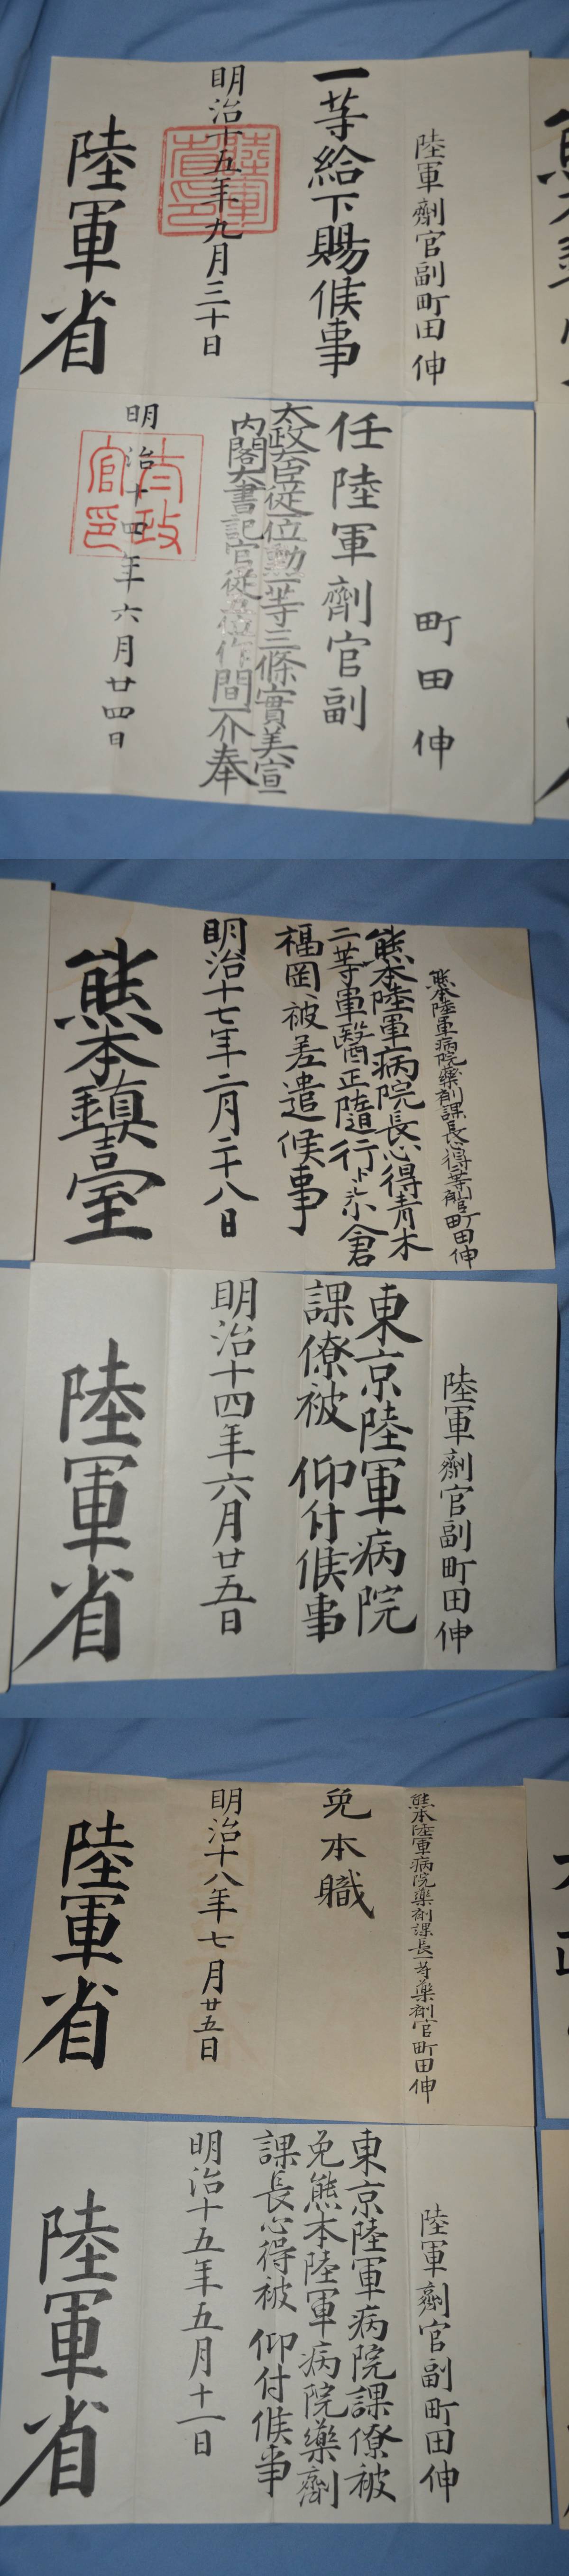 陸軍劑官副町田伸
一等給下賜候事
明治十五年九月三十日
陸軍省印
陸軍省
町田伸
任陸軍劑官副
太政大臣従一位勲一等三條實美宣
内閣大書記官従五位作間一介奉
明治十四年六月廿四日
太政官印
熊本陸軍病院藥剤課長心得一等剤官町田伸
熊本陸軍病院長心得青木
二等軍醫正随行小倉
福岡被差遣候事
明治十七年二月二十八日
熊本鎮臺
陸軍劑官副町田伸
東京陸軍病院
課僚被 仰付候事
明治十四年六月廿五日
陸軍省
熊本陸軍病院藥剤課長一等藥剤官町田伸
免本職
明治十八年七月廿五日
陸軍省
陸軍劑官副町田伸
東京陸軍病院課僚被
免熊本陸軍病院藥劑
課長心得被 仰付候事
明治十五年五月十一日
陸軍省